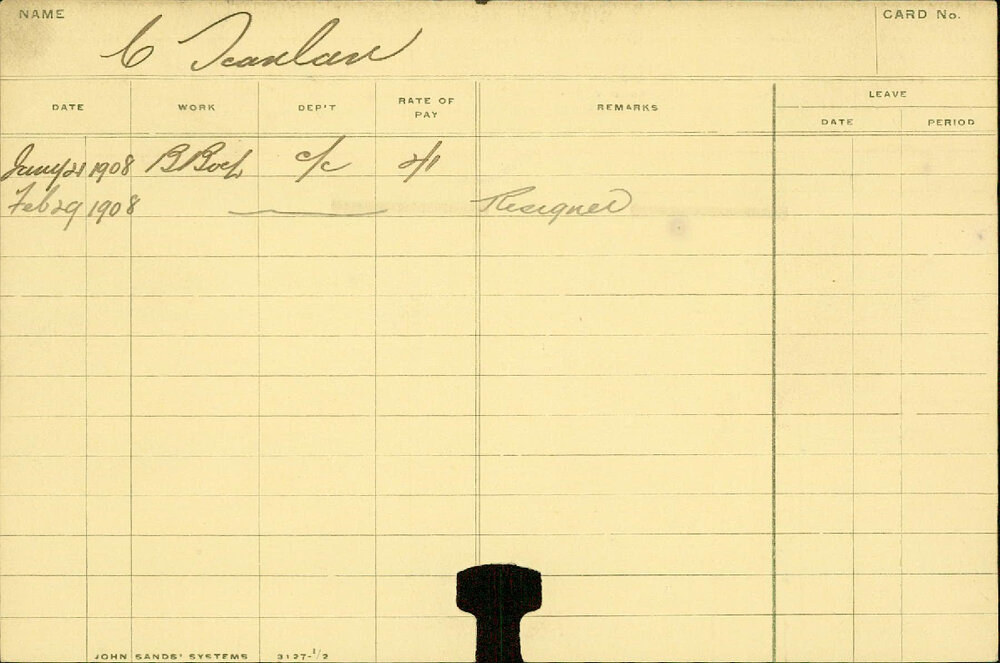 NAME C Scanlan CARD No.
DATE WORK DEP'T RATE OF PAY REMARKS LEAVE
DATE PERIOD
Jany 21 1908 c/c
Feb 29 1908 Resigned
JOHN SANDS' SYSTEMS 3127-1/2